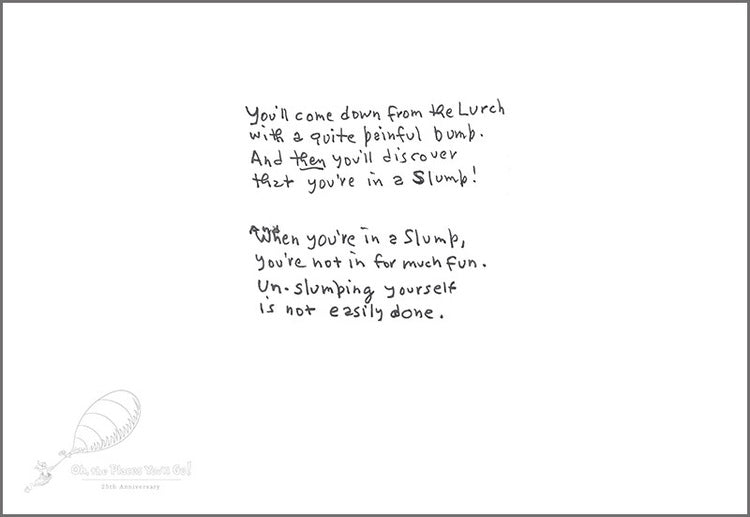 You'll come down from the Lurch
with a quite painful bump.
And then you'll discover
that you're in a Slump!
And
When you're in a Slump,
you're not in for much fun.
Un-slumping yourself
is not easily done.
Oh, the Places You'll Go!
25th Anniversary